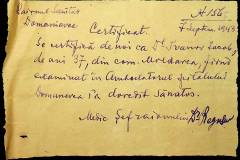 Raionul Sanitar
Domanovca
N 156
7 Septem. 1943
Certificat.
Se certifică de noi că Dl. Ivanov Iacob,
de ani 37, din com. Moldovca, fiind
examinat în Ambulatorul Spitalului
Domanovca l'a dovedit sănătos.
Medic Șef raionului Dr